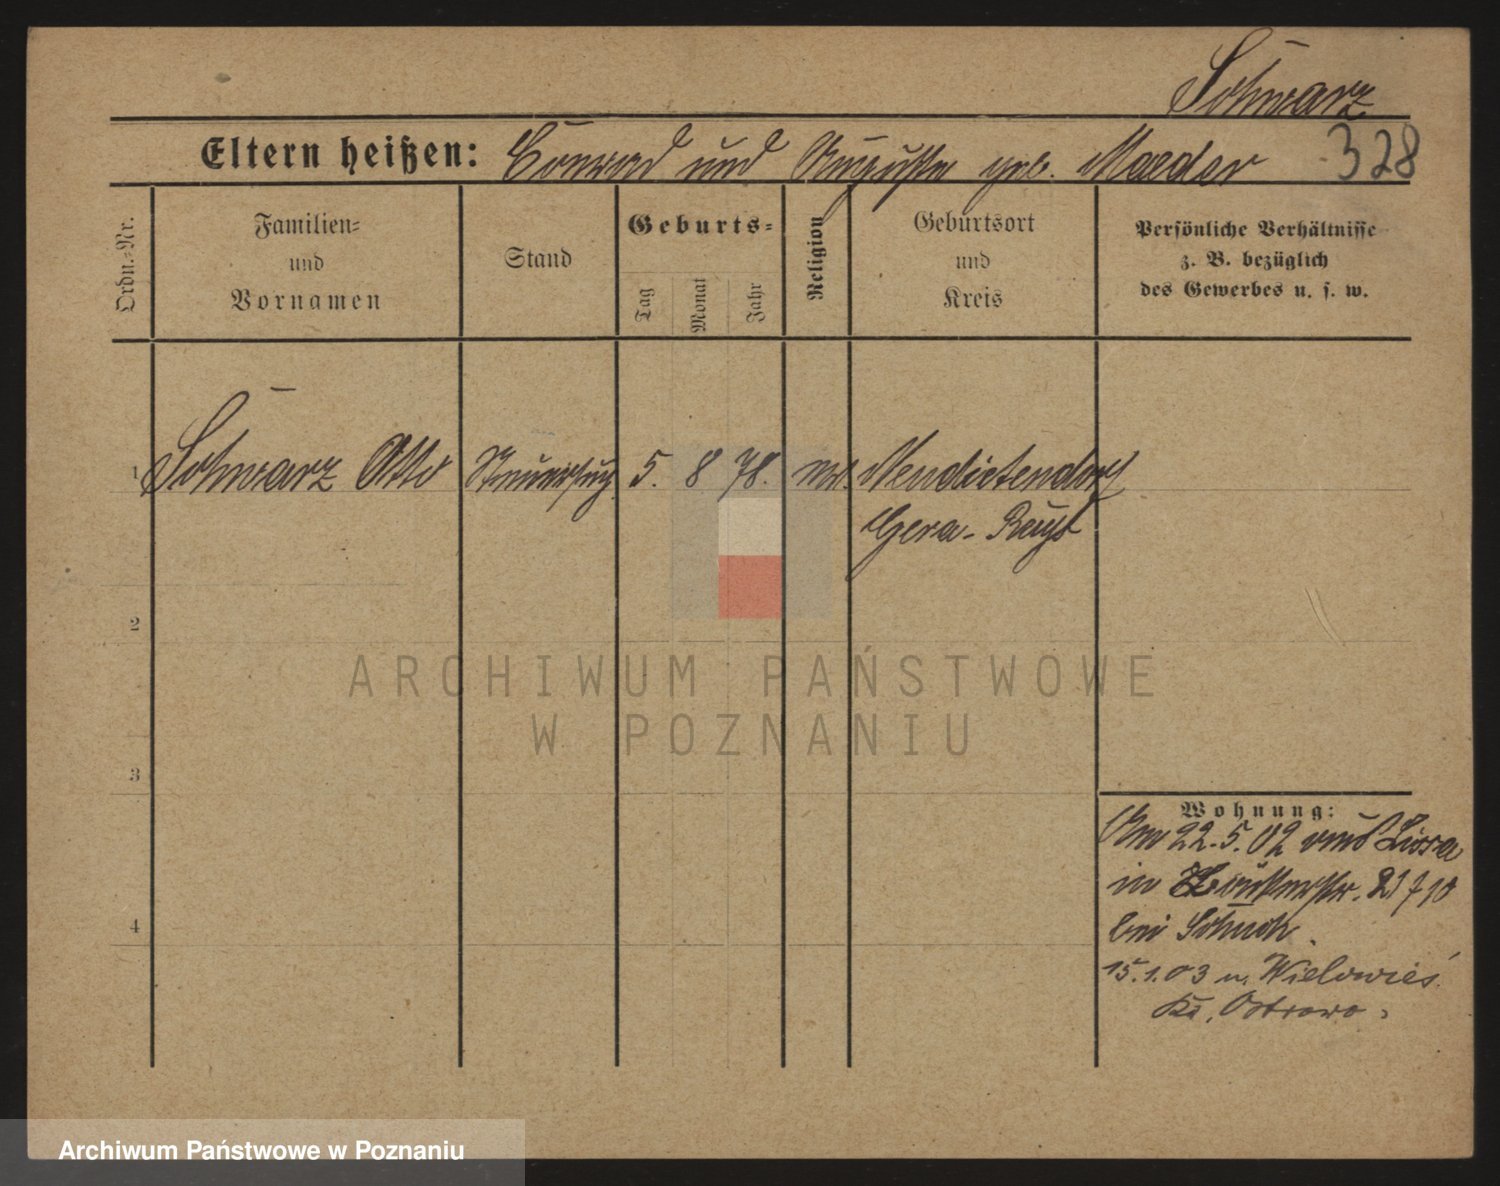 Schwarz
Eltern heißen: Conrad und Auguste geb. Maeder 328
Ordn.-Nr.
Familien-
und
Vornamen
Stand
Geburts-
Tag
Monat
Jahr
Religion
Geburtsort
und
Kreis
Persönliche Verhältnisse
z. B. bezüglich
des Gewerbes u. s. w.
1 Schwarz Otto 5. 8 78.
Gera-
2
ARCHIWUM PAŃSTWOWE
W POZNANIU
3
Wohnung:
Am 22.5.02 aus Lissa
in
4
bei Schuch.
15.1.03 n. Wielowieś
Ks. Ostrowo.
Archiwum Państwowe w Poznaniu